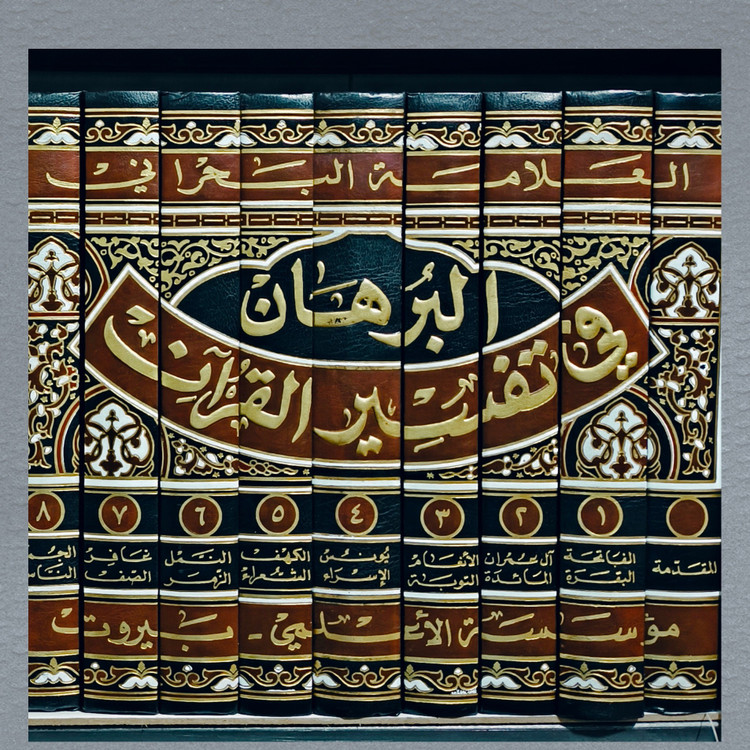 العلامة البحراني
البرهان
في تفسير القرآن
١ ٢ ٣ ٤ ٥ ٦ ٧ ٨
المقدمة
الفاتحة البقرة
آل عمران المائدة
الأنعام التوبة
يونس الإسراء
الكهف الشعراء
النمل الزمر
غافر الصف
الجمعة الناس
مؤسسة الأعلمي - بيروت